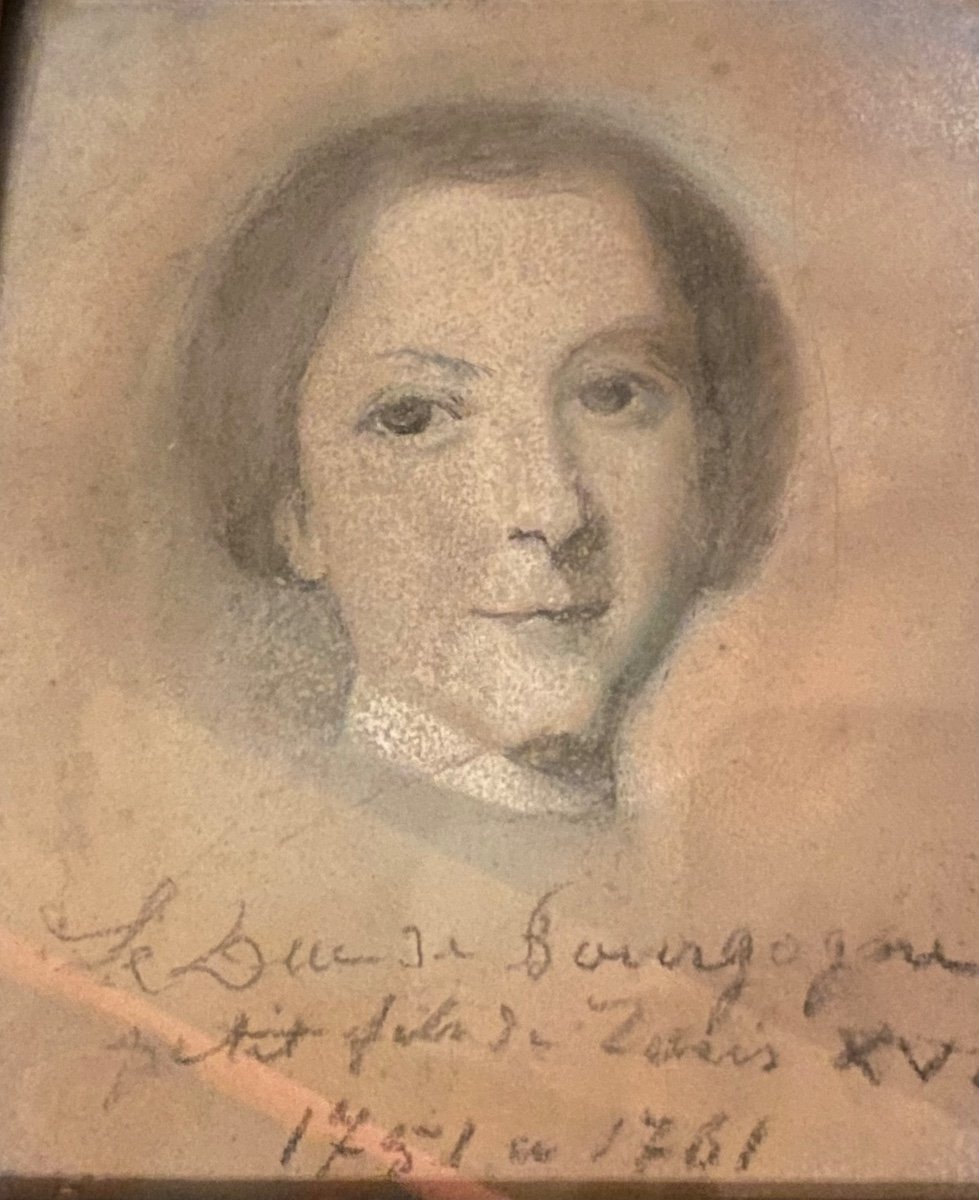 Le Duc de Bourgogne
petit fils de Louis XV
1751 a 1761